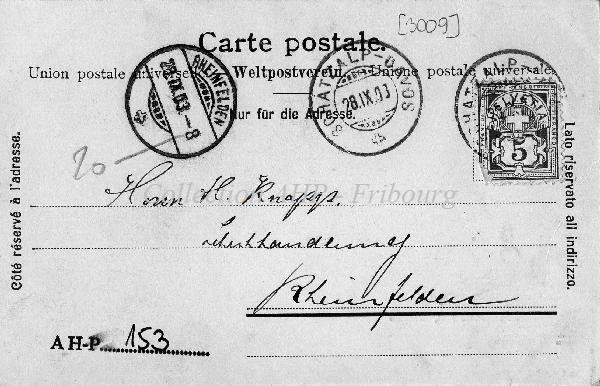 [3009]
Carte postale.
Union postale universelle. Weltpostverein. Unione postale universale.
Nur für die Adresse.
RHEINFELDEN
29.IX.03.-8
SCHATZALP-DAVOS
28.IX.03
SCHATZALP
HELVETIA
5
20
Côté réservé à l'adresse.
Lato riservato all indirizzo.
Collection AHP - Fribourg
Herrn H. Knapp,
Rheinfelden
AH-P 153